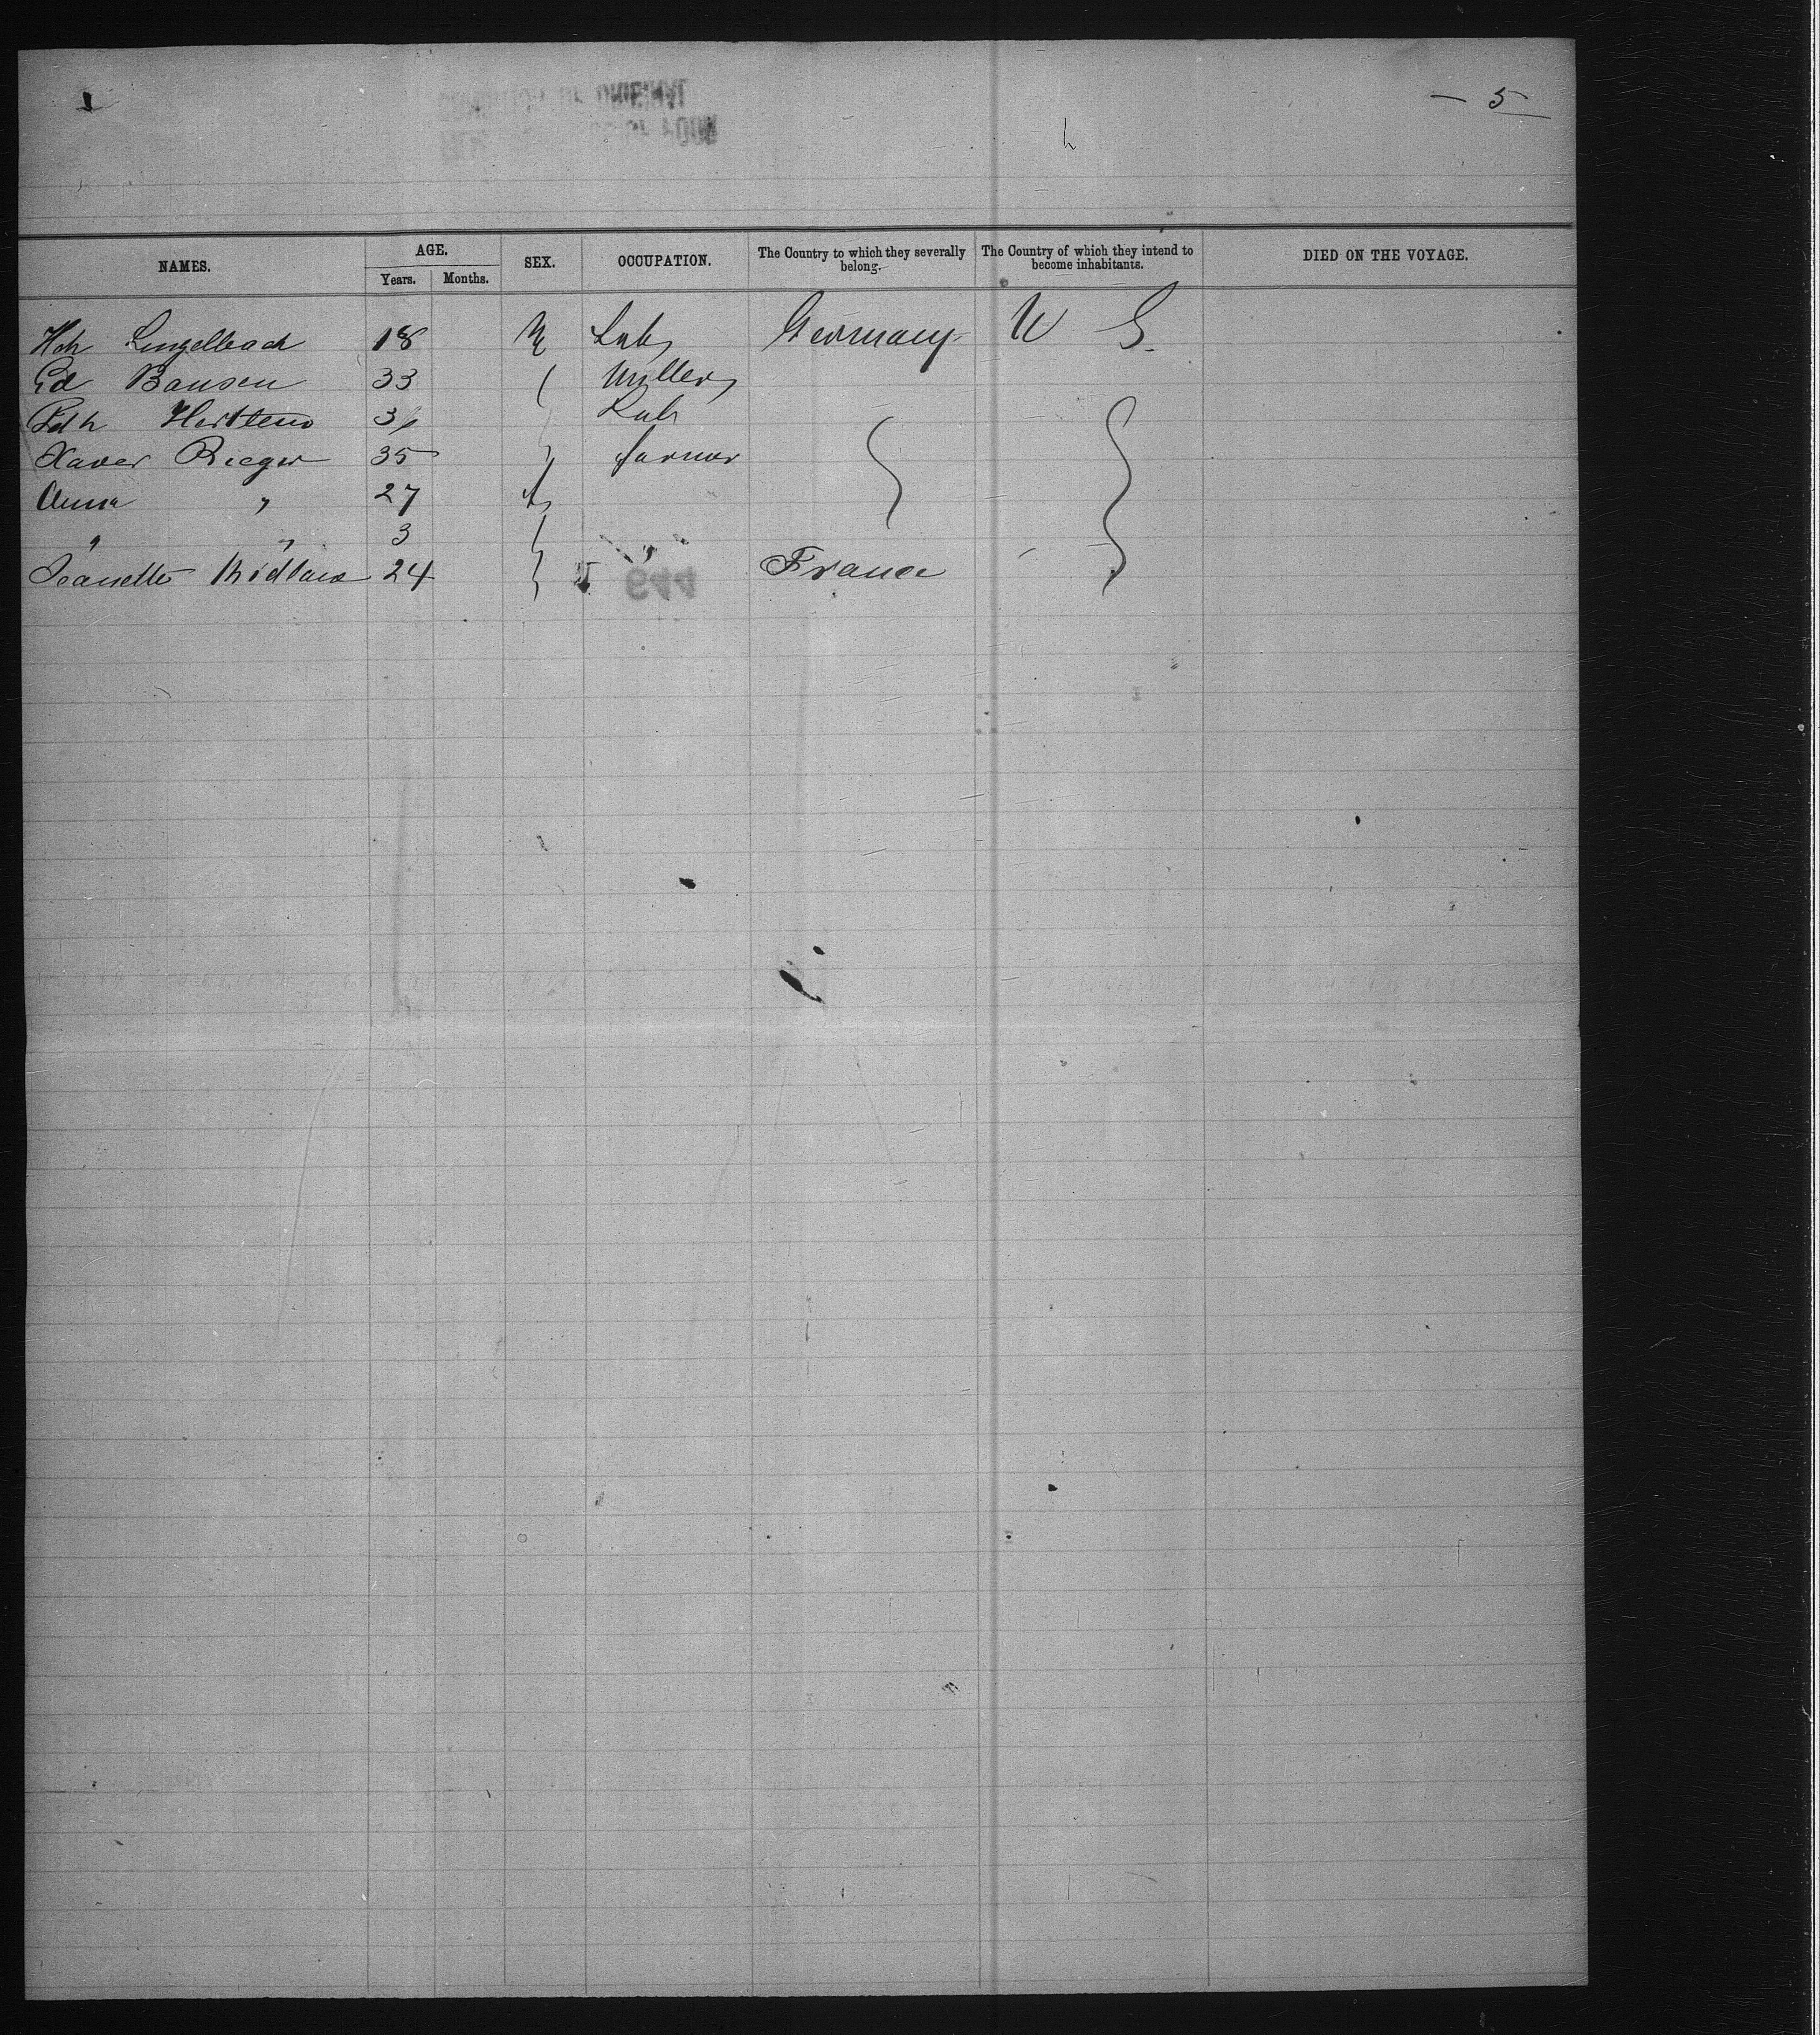 — 5
NAMES. AGE. Years. Months. SEX. OCCUPATION. The Country to which they severally belong. The Country of which they intend to become inhabitants. DIED ON THE VOYAGE.
Hch Lingelbach 18 M Lab Germany U S.
Ed Bansen 33 Miller
Hertlein Lab
Xaver Rieger 35 farmer
Anna " 27 f
" " 3
Jeanette 24 France
644